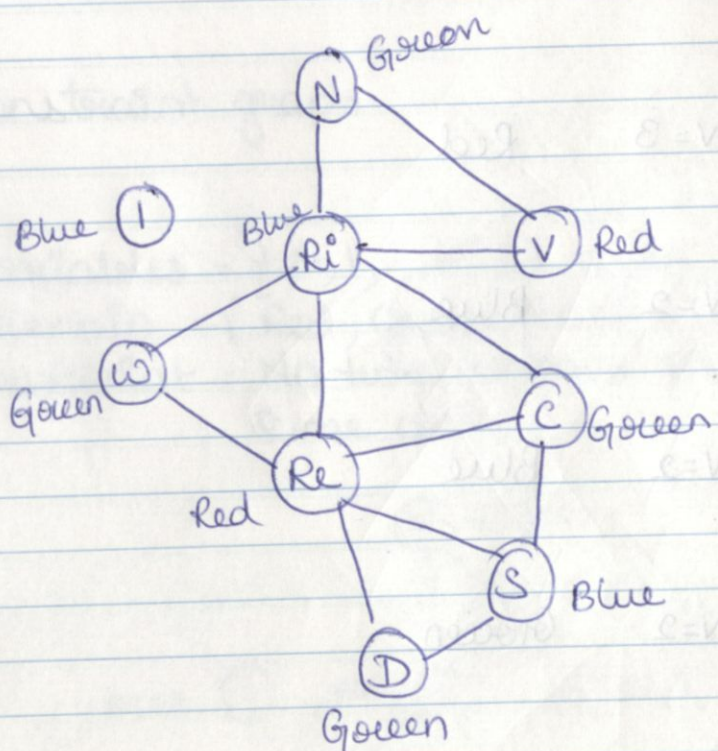 Green
N
Blue I
Blue
Ri
V Red
W
Green
C Green
Re
Red
S Blue
D
Green